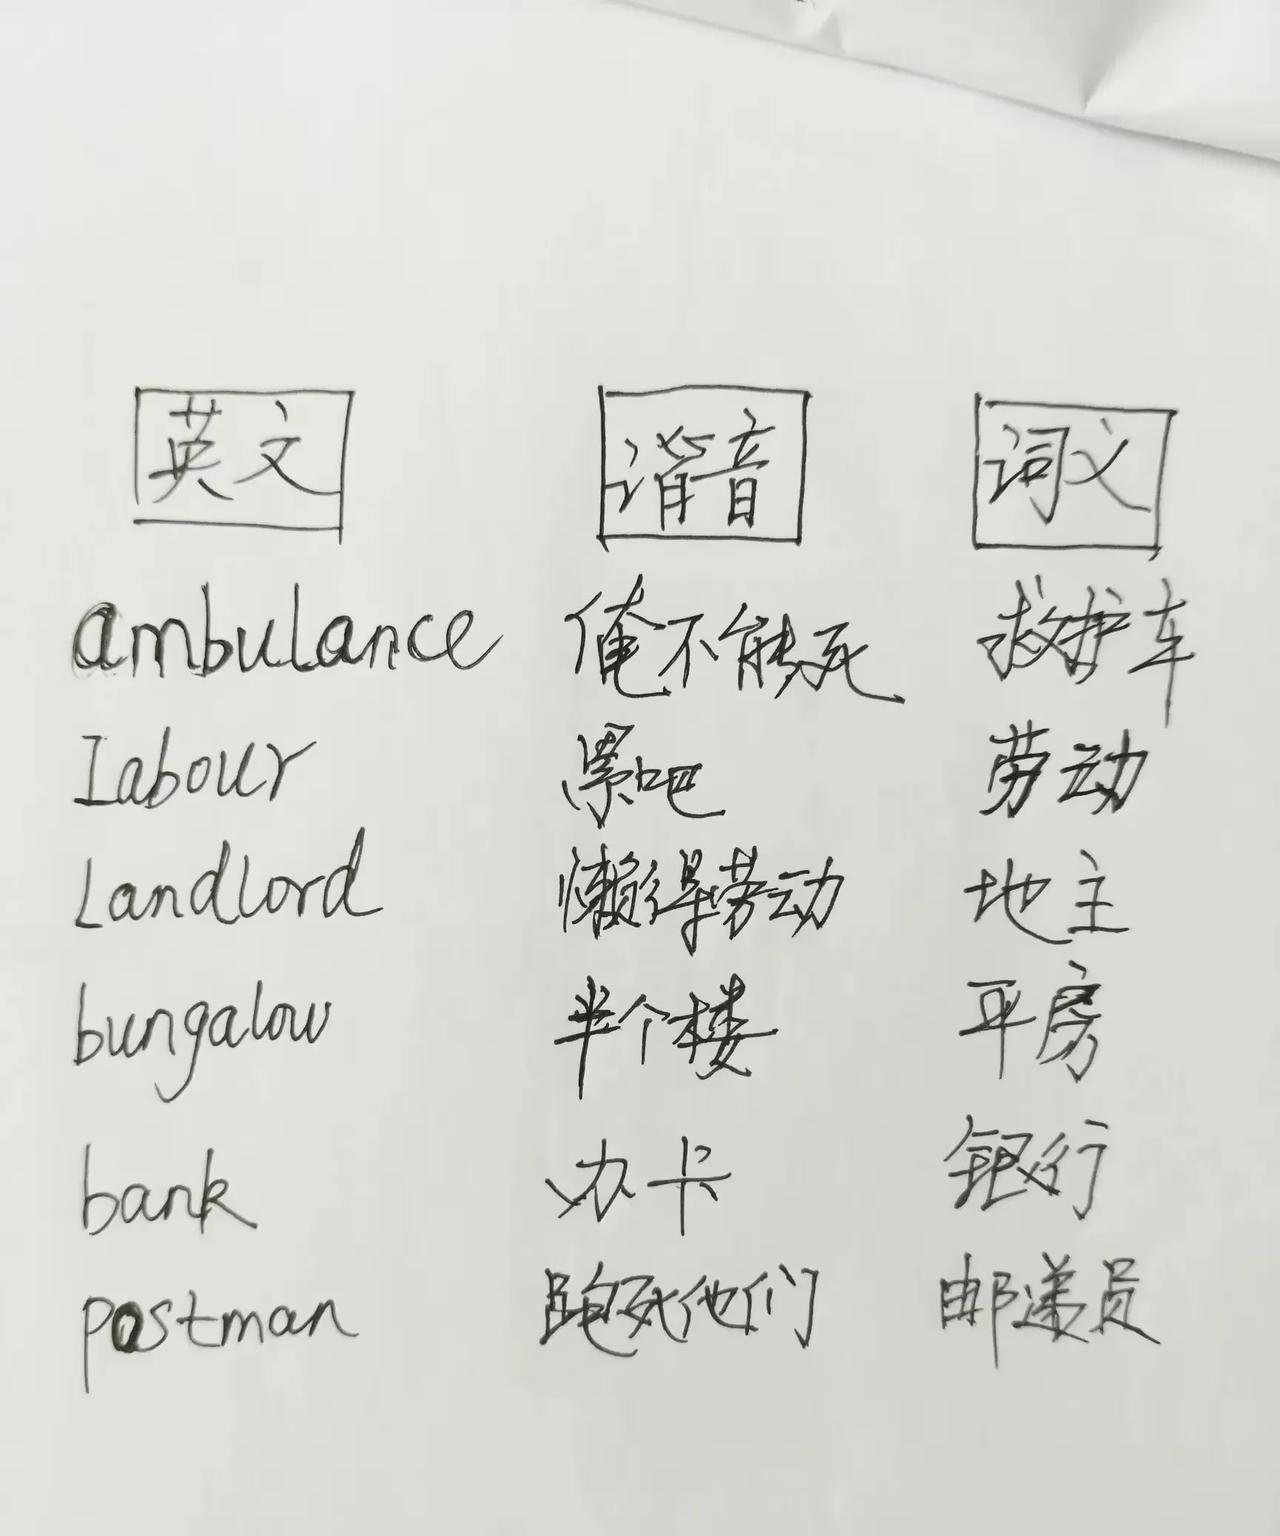 英文 谐音 词义
ambulance 俺不能死 救护车
Labour 累吧 劳动
Landlord 懒得劳动 地主
bungalow 半个楼 平房
bank 办卡 银行
postman 跑死他们 邮递员